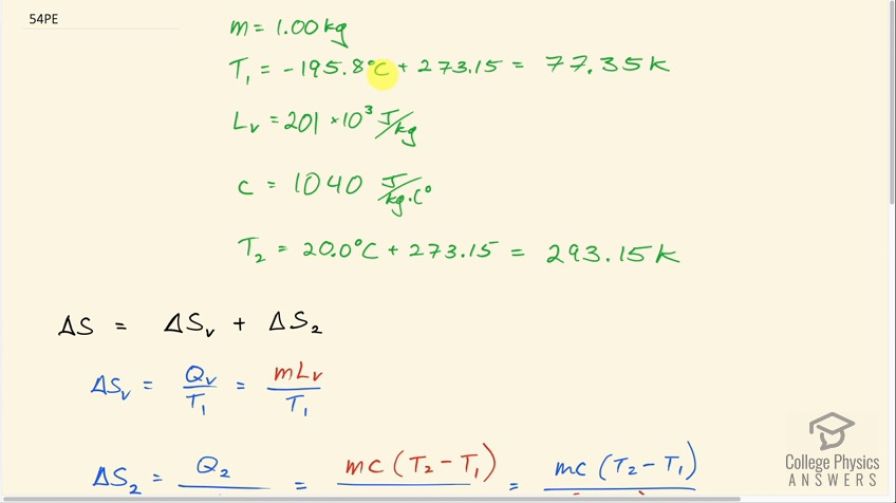 54PE
m = 1.00 kg
T₁ = -195.8°C + 273.15 = 77.35 K
Lᵥ = 201 × 10³ J/kg
c = 1040 J/kg·C°
T₂ = 20.0°C + 273.15 = 293.15 K
ΔS = ΔSᵥ + ΔS₂
ΔSᵥ = Qᵥ/T₁ = mLᵥ/T₁
ΔS₂ = Q₂/ = mc(T₂ - T₁)/ = mc(T₂ - T₁)/
College Physics
ANSWERS